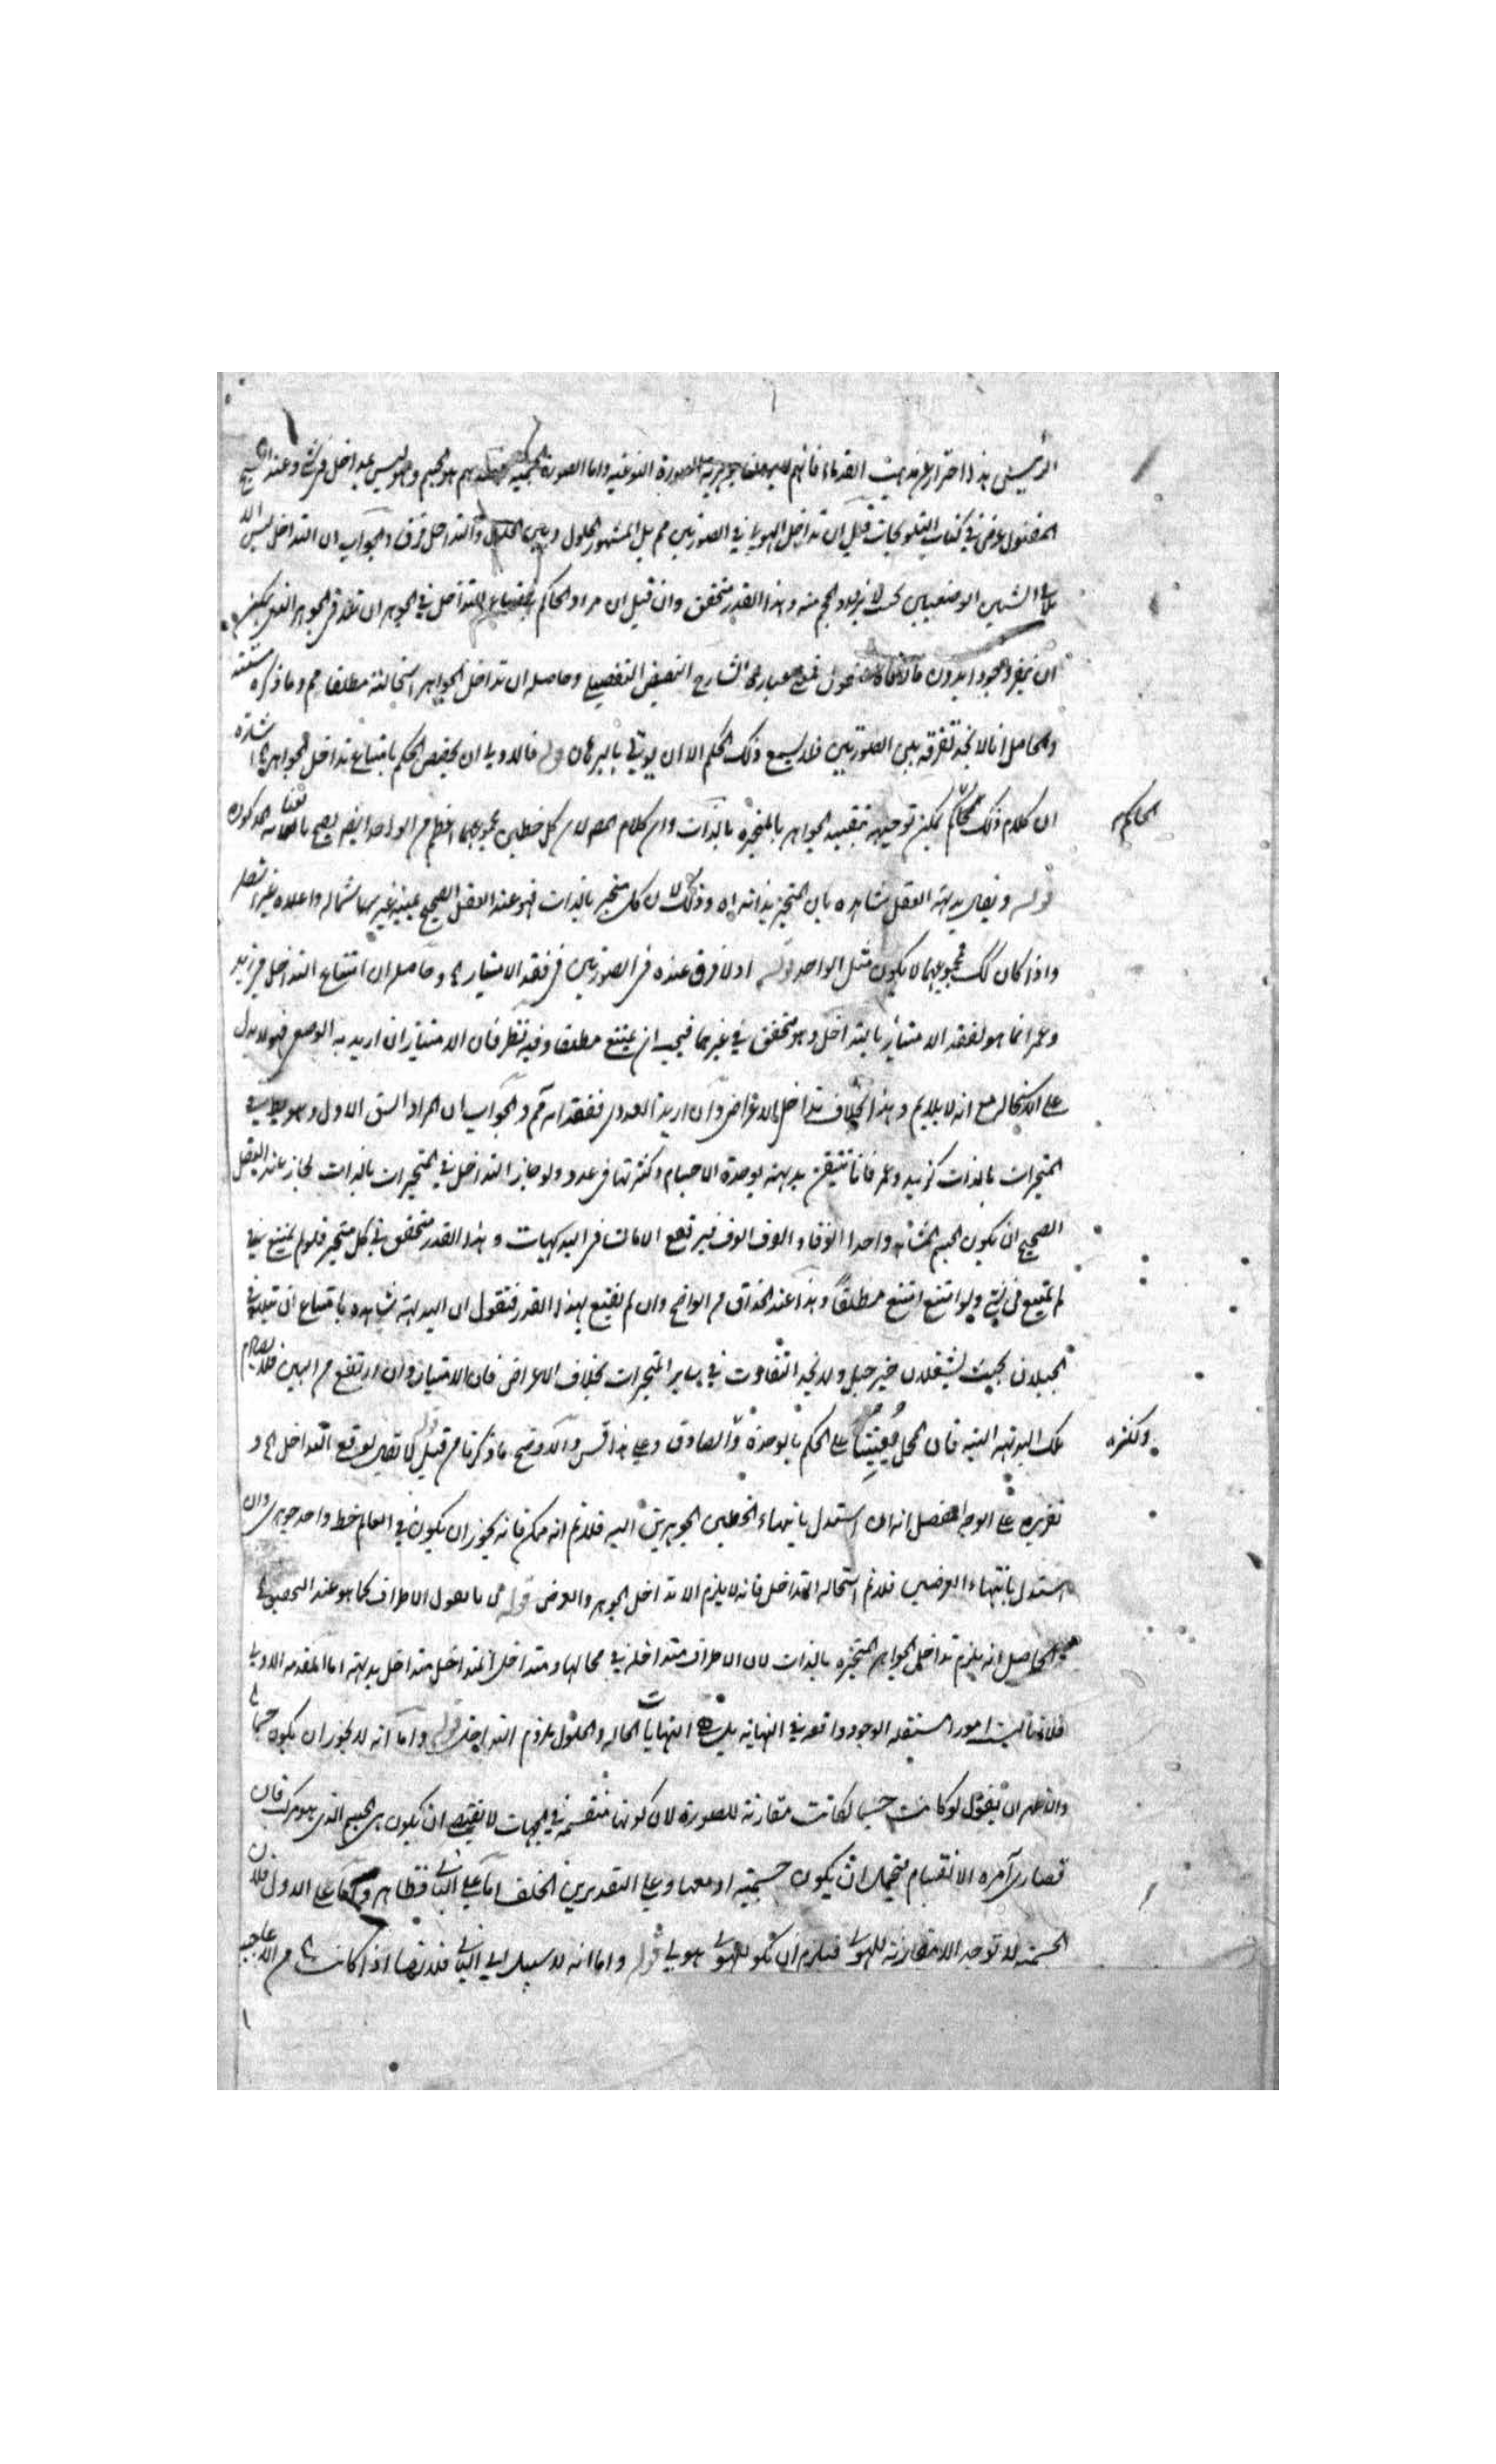 الرئيس هذا احتراز عن مذهب القدماء فانهم جوهرية الصورة النوعية واما الصورة الجسمية عندهم هو الجسم وهو ليس بداخل في شئ وعند الشيخ
المقتول عرض في كتاب التلويحات قيل ان تداخل الهيولى في الصورتين مم بل المشهور الحلول وبين الحلول والتداخل فرق والجواب ان التداخل ليس الا
تلاقي الشيئين الوضعيين بحيث لا يزيد الحجم منه وهذا القدر متحقق وان قيل ان مراد الحاكم بامتناع التداخل في الجوهر ان تلاقي الجوهر الذي يمكن
ان ينفرد وجود ا بدون نقول فمنع الشارح النقيض التفصيلي وحاصله ان تداخل الجواهر استحالته مطلقا مم وما ذكره سنده
والحاصل انا لا نجد تفرقة بين الصورتين فلا يسمع ذلك الحكم الا ان يؤتى بالبرهان قوله فالاولى ان يخصص الحكم بامتناع تداخل الجواهر اه اشارة
ان كلام ذلك الحاكم يمكن توجيهه بتقييد الجواهر بالمتحيزة بالذات وان كلام المص لان كل خطين مجموعهما اعظم من الواحد ايضا يصح بالعناية المذكورة
الحاكم
قوله ونقول بديهة العقل شاهدة بان المتحيز بذاته اه وذلك لان كل متحيز بالذات فهو عند العقل الصحيح يمينه غير شماله واعلاه غير اسفله
واذا كان كك فمجموعهما لا يكون مثل الواحد قوله اذ لا فرق عنده في الصورتين في فقد الامتياز اه وحاصله ان امتناع التداخل في زيد
وعمر انما هو لفقد الامتياز بالتداخل وهو متحقق في غيرهما فيجب ان يمتنع مطلقا وفيه نظر فان الامتياز ان اريد به الوضعي فهو لا يدل
على الاستحالة مع انه لا يلايم وهذا بخلاف تداخل الاعراض وان اريد العددي ففقدانه مم والجواب ان المراد الشق الاول وهو يبطل في
المتحيزات بالذات كزيد وعمر فانا نتيقن بديهة بوحدة الاجسام وكثرتها في عدد ولو جاز التداخل في المتحيزات بالذات لجاز عند العقل
الصحيح ان يكون الجسم المشاهد واحدا الوفا والوف الوف فيرتفع الامان في البديهيات وهذا القدر متحقق في كل متحيز فلو لم يمتنع في
لم يمتنع في شئ ولو امتنع امتنع مطلقا وهذا عند الحذاق من الواضح وان لم يقنع بهذا القدر فنقول ان البديهة شاهدة بامتناع ان يتلاقى
الجبلان بحيث يشغلان حيز جبل ولا نجد التفاوت في ساير المتحيزات بخلاف الاعراض فان الامتياز وان ارتفع من البين فلا يصادم
تلك البديهة البتة فان المحل معينا على الحكم بالوحدة والصادق وعلى هذا قس والاوضح ما ذكرنا من قبل قوله لا نقول بوقوع التداخل اه و
وكثرة
تقريره على الوجه المفصل انه ان استدل بانتهاء الخطين الجوهريين اليه فلا نم انه ممكن فانه يجوز ان يكون في العالم خط واحد جوهري وان
استدل بانتهاء العرضين فلا نم استحالة التداخل فانه لا يلزم الا تداخل الجوهر والعرض قوله الاطراف كما هو عند التحقيق
الحاصل انه يلزم تداخل الجواهر المتحيزة بالذات لان الاطراف متداخلة في محالها ومتداخل المتداخل متداخل بديهة اما المقدمة الاولى
فلانها ليست امور مستقلة الوجود واقعة في النهاية بل النهايات الحالة والحلول ملزوم التداخل قوله واما انه لا يجوز ان يكون جسما
والظاهر ان يقول لو كانت جسما لكانت مقارنة للصورة لان كونها منقسمة في الجهات لا يقتضي ان يكون هي الجسم الذي هو مركب فان
قصارى امره الانقسام فيحتمل ان يكون جسمية او معها وعلى التقديرين الخلف اما على الثاني فظاهر واما على الاول فلان
الجسمية لا توجد الا مقارنة للهيولى فيلزم ان يكون للهيولى هيولى قوله واما انه لا سبيل الى الثاني فلانها اذا كانت اه من